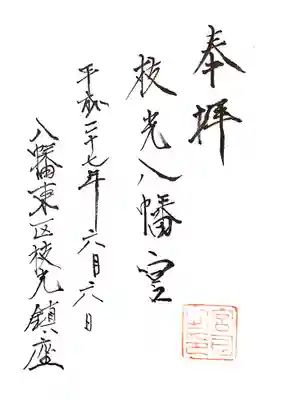 奉拝
枝光八幡宮
平成二十七年六月六日
八幡東区枝光鎮座